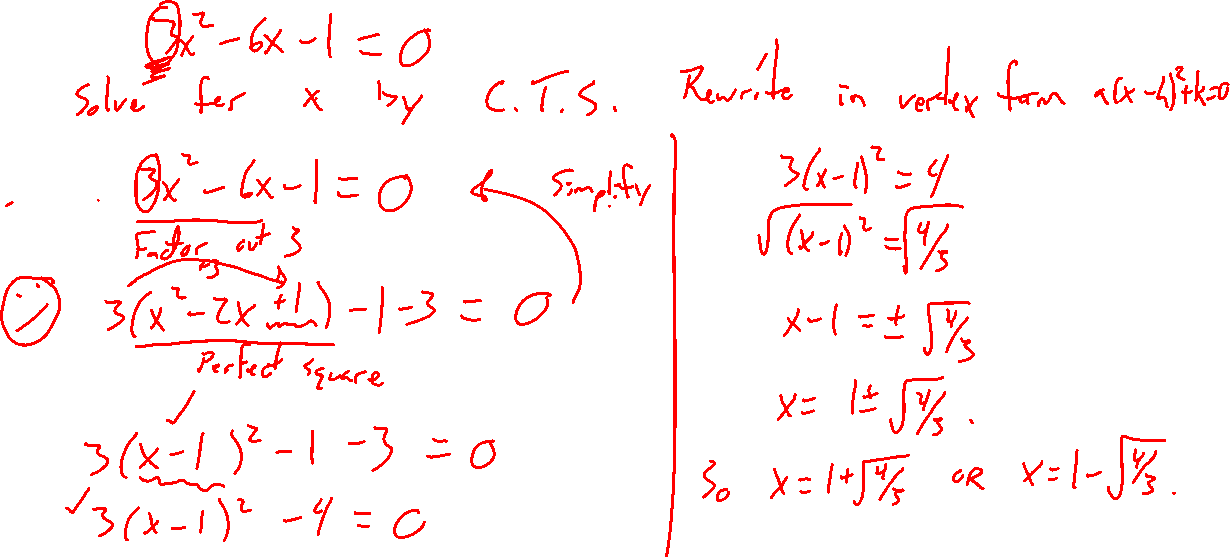 3x² - 6x - 1 = 0
Solve for x by C.T.S. Rewrite in vertex form a(x-h)²+k=0
3x² - 6x - 1 = 0
Simplify
Factor out 3
3(x² - 2x + 1) - 1 - 3 = 0
Perfect square
3(x - 1)² - 1 - 3 = 0
3(x - 1)² - 4 = 0
3(x-1)² = 4
√(x-1)² = √4/3
x - 1 = ± √4/3
x = 1 ± √4/3.
So x = 1 + √4/3 OR x = 1 - √4/3.